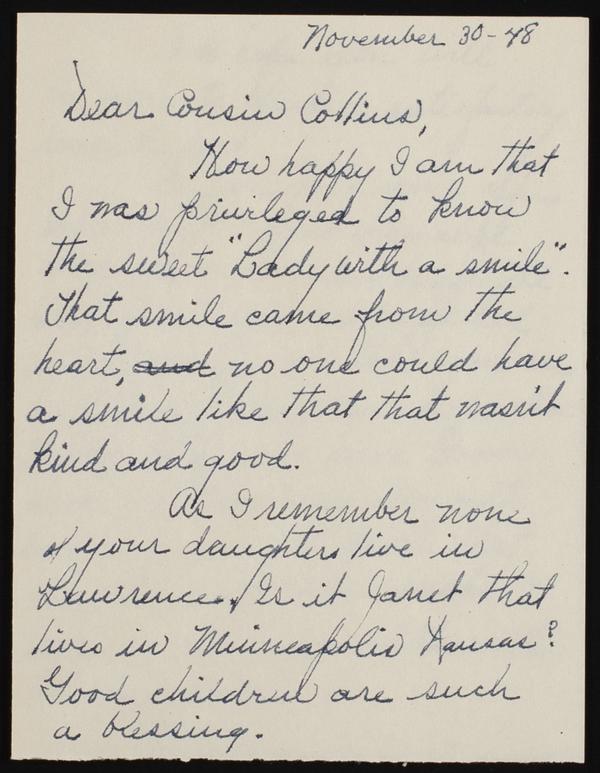 November 30-48
Dear Cousin Collins,
How happy I am that
I was privileged to know
the sweet "Lady with a smile".
That smile came from the
heart, and no one could have
a smile like that that wasn't
kind and good.
As I remember none
of your daughters live in
Lawrence. Is it Janet that
lives in Minneapolis Kansas?
Good children are such
a blessing.